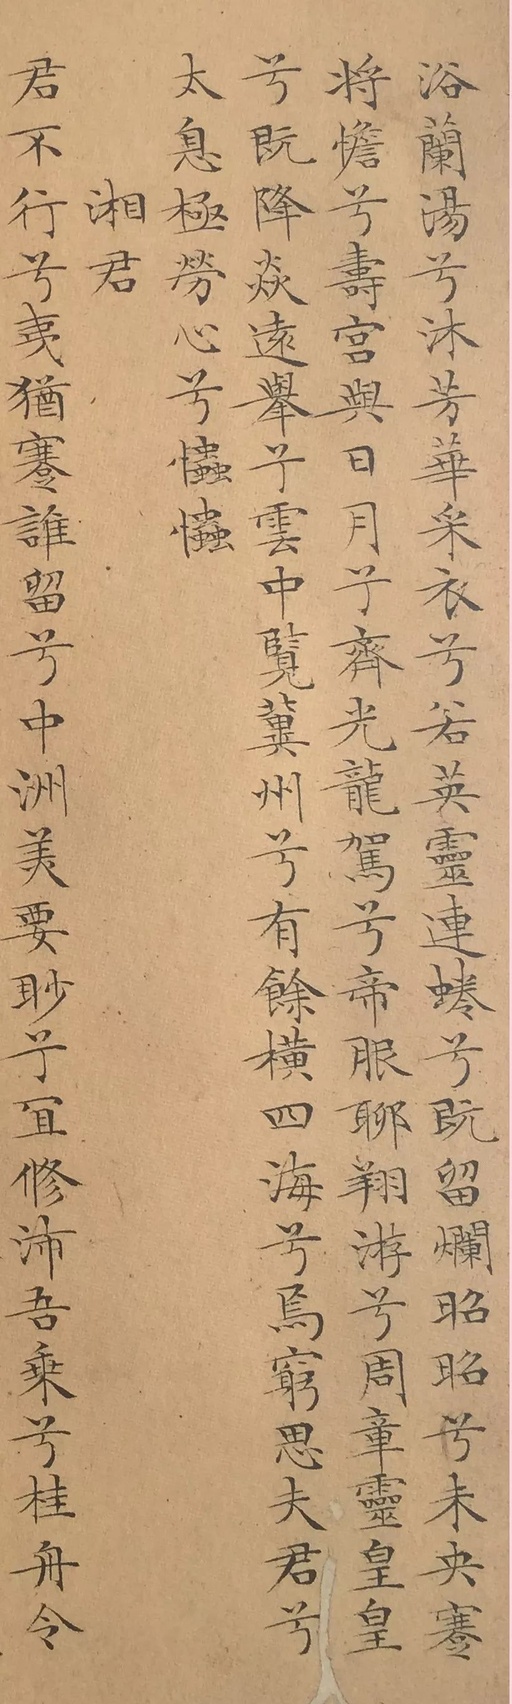 浴蘭湯兮沐芳華采衣兮若英靈連蜷兮既留爛昭昭兮未央蹇
将憺兮壽宮與日月兮齊光龍駕兮帝服聊翔游兮周章靈皇皇
兮既降焱遠舉兮雲中覽冀州兮有餘橫四海兮焉窮思夫君兮
太息極勞心兮㦀㦀
湘君
君不行兮夷猶蹇誰留兮中洲美要眇兮宜修沛吾乘兮桂舟令